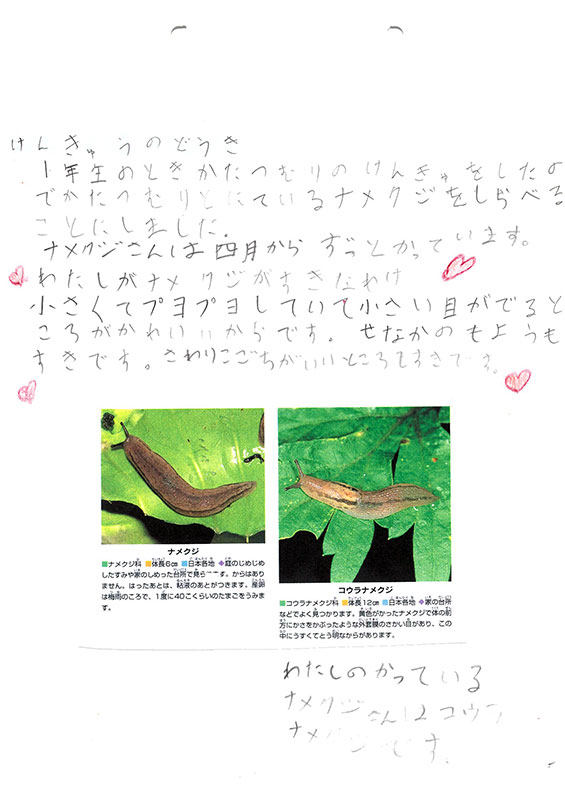 けんきゅうのどうき
1年生のときかたつむりのけんきゅをしたの
でかたつむりとにているナメクジをしらべる
ことにしました。
ナメクジさんは四月からずっとかっています。
わたしがナメクジがすきなわけ
小さくてプヨプヨしていて小さい目がでると
ころがかわいいからです。せなかのもようも
すきです。さわりごこちがいいところもすきです。
ナメクジ
■ナメクジ科 ■体長6cm ■日本各地 ◆庭のじめじめ
したすみや家のしめった台所で見ら す。からはあり
ません。はったあとは、粘液のあとがつきます。産卵
は梅雨のころで、1度に40こくらいのたまごをうみま
す。
コウラナメクジ
■コウラナメクジ科 ■体長12cm ■日本各地 ◆家の台所
などでよく見つかります。黄色がかったナメクジで体の前
方にかさをかぶったような外套膜のさかい目があり、この
中にうすくてとう明なからがあります。
わたしのかっている
ナメクジさんはコウラ
ナメクジです。